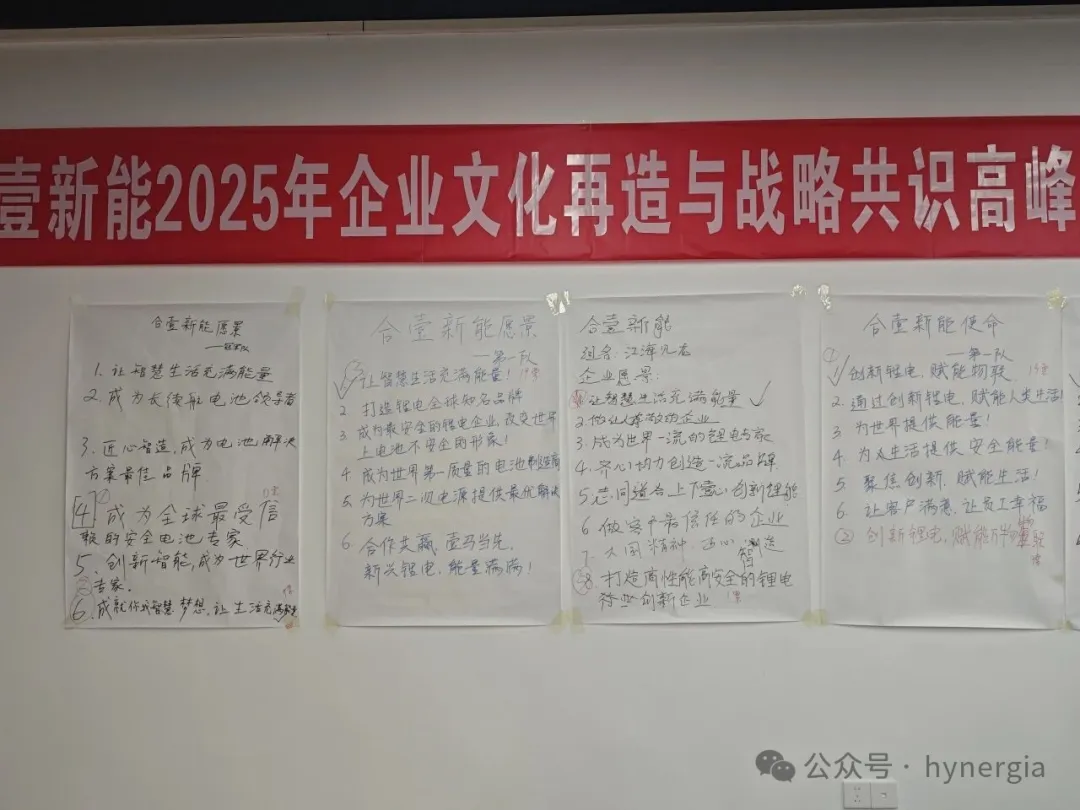 壹新能2025年企业文化再造与战略共识高峰
合壹新能愿景
1. 让智慧生活充满能量
2. 成为长续航电池领导者
3. 匠心智造,成为电池解决
方案最佳品牌
[4] 成为全球最受信
赖的安全电池专家
5、创新智能,成为世界行业
专家.
6.成就你我智慧梦想,让生活充满
合壹新能愿景
—第一队
让智慧生活充满能量!
2 打造锂电全球知名品牌
3. 成为最安全的锂电企业,改变世界
上电池不安全的形象!
4. 成为世界第一质量的电池制造商
5. 为世界二次电源提供最优解决
方案
6. 合作共赢,壹马当先,
新兴锂电,能量满满!
合壹新能
组名:江海元老
企业愿景:
让智慧生活充满能量
2.做让人尊敬的企业
3.成为世界一流的锂电专家
4.齐心协力创造一流品牌
5.志同道合上下壹心,创新锂能
6 做客户最信任的企业
7、工匠精神,
8、打造高性能高安全的锂电
创新企业
合壹新能使命
—第一队
1 创新锂电,赋能物联
2. 通过创新锂电,赋能人类生活!
3. 为世界提供能量!
4. 为生活提供安全能量!
5. 聚焦创新,赋能生活!
6. 让客户满意,让员工幸福
② 创新锂电,赋能万物
公众号 · hynergia